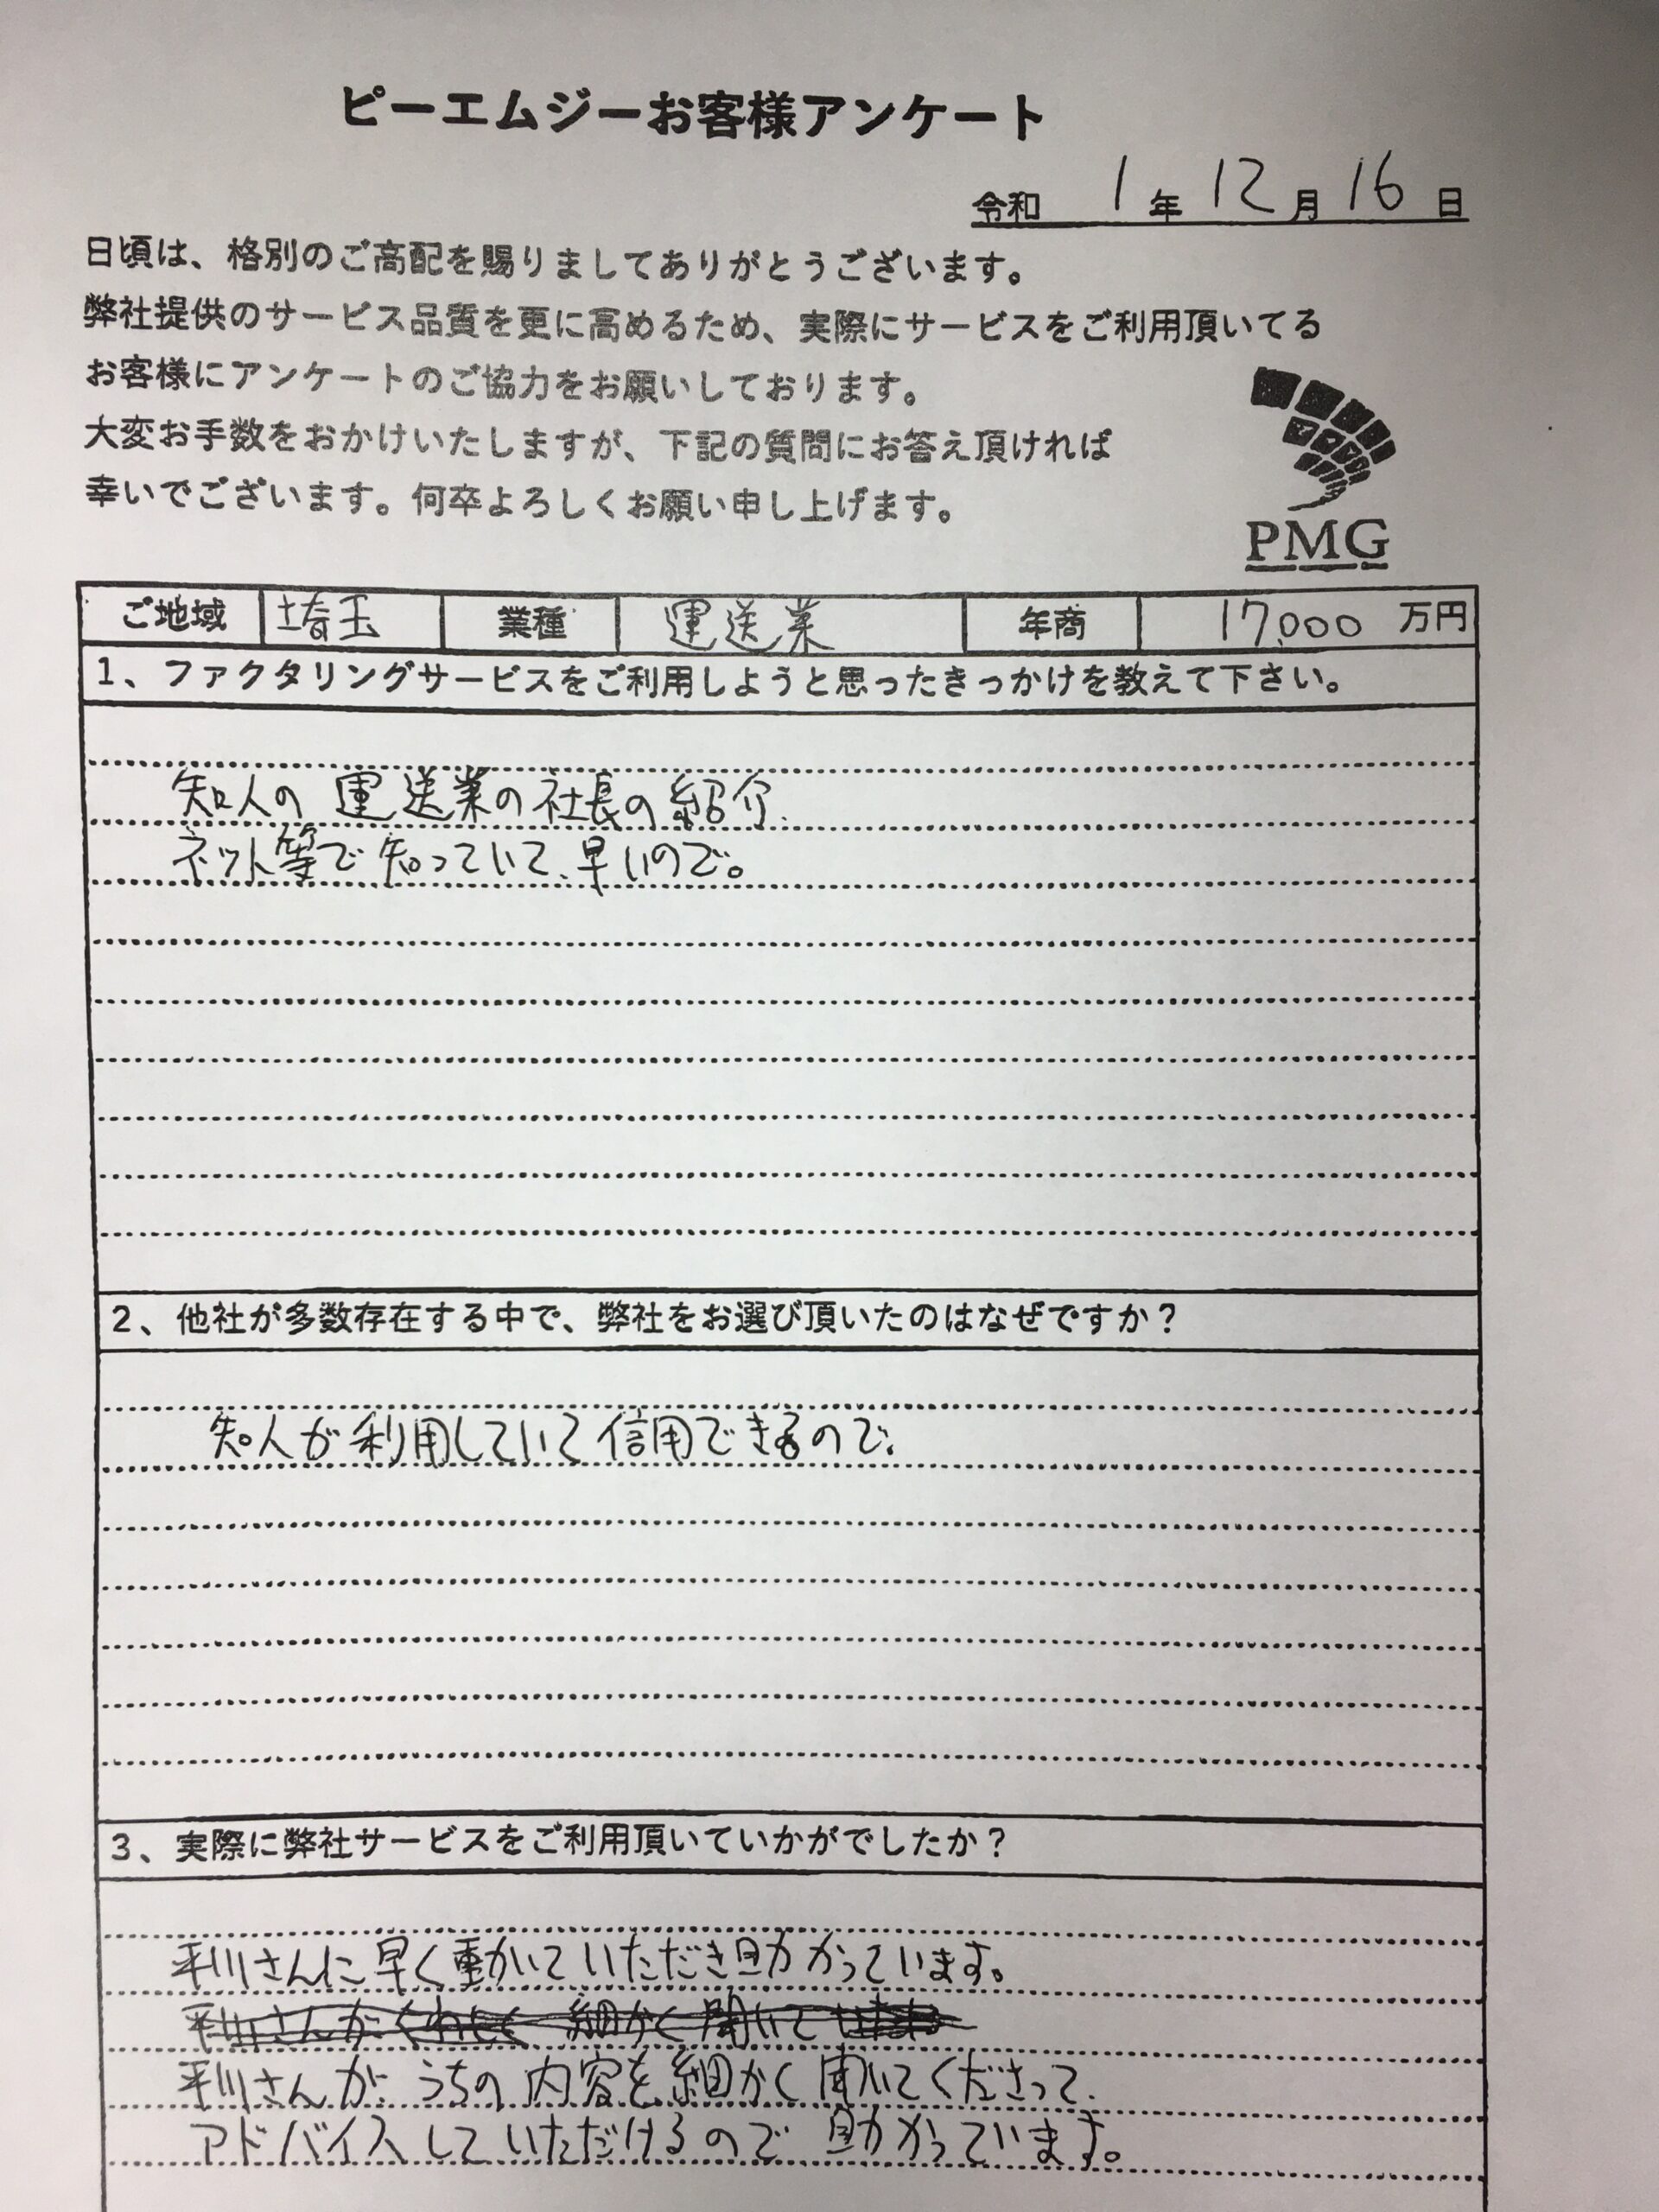 ピーエムジーお客様アンケート
令和 1年12月16日
日頃は、格別のご高配を賜りましてありがとうございます。
弊社提供のサービス品質を更に高めるため、実際にサービスをご利用頂いてる
お客様にアンケートのご協力をお願いしております。
大変お手数をおかけいたしますが、下記の質問にお答え頂ければ
幸いでございます。何卒よろしくお願い申し上げます。
PMG
ご地域 埼玉 業種 運送業 年商 17,000 万円
1、ファクタリングサービスをご利用しようと思ったきっかけを教えて下さい。
知人の運送業の社長の紹介.
ネット等で知っていて、早いので。
2、他社が多数存在する中で、弊社をお選び頂いたのはなぜですか?
知人が利用していて信用できるので、
3、実際に弊社サービスをご利用頂いていかがでしたか?
平川さんに早く動かいていただき助かっています。
平川さんが 細かく聞いて
平川さんが、うちの内容を細かく聞いてくださって、
アドバイスしていただけるので助かっています。